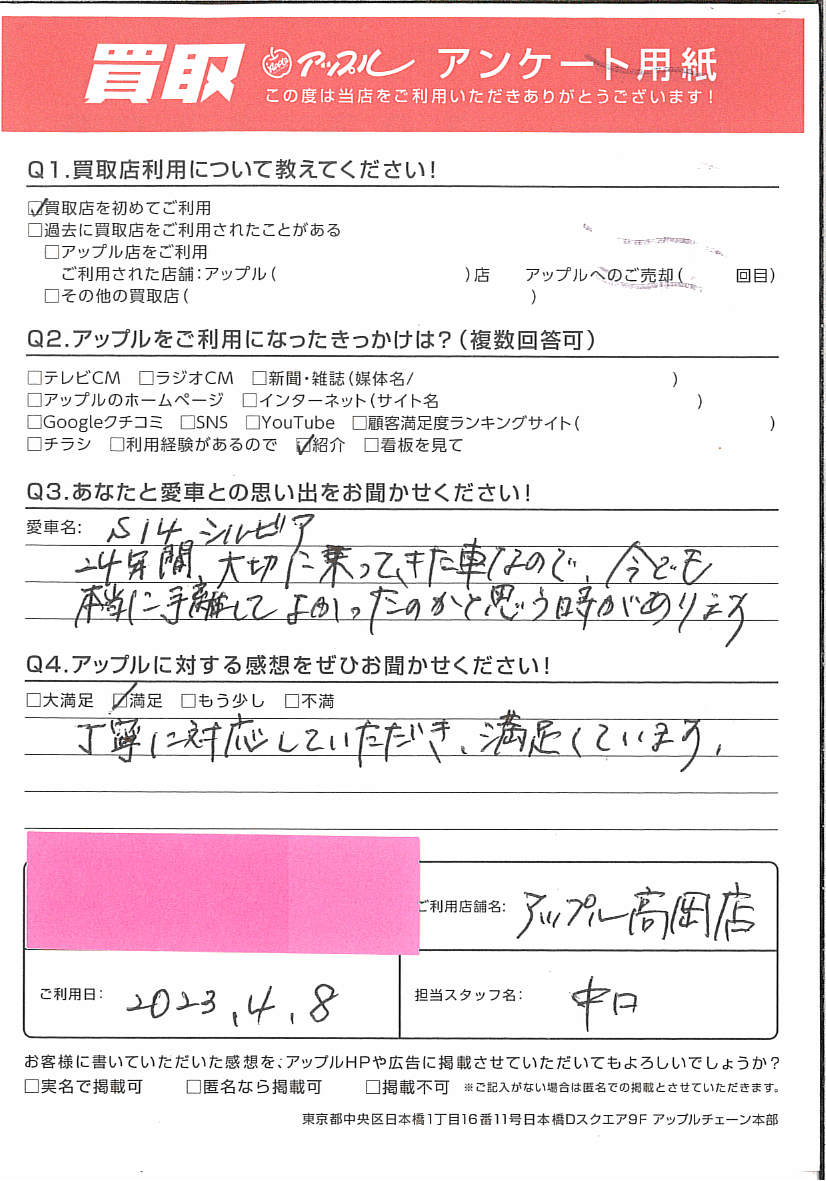 買取 アップル アンケート用紙
この度は当店をご利用いただきありがとうございます!
Q1.買取店利用について教えてください!
☑買取店を初めてご利用
□過去に買取店をご利用されたことがある
□アップル店をご利用
ご利用された店舗:アップル( )店 アップルへのご売却( 回目)
□その他の買取店( )
Q2.アップルをご利用になったきっかけは?(複数回答可)
□テレビCM □ラジオCM □新聞・雑誌(媒体名/ )
□アップルのホームページ □インターネット(サイト名 )
□Googleクチコミ □SNS □YouTube □顧客満足度ランキングサイト( )
□チラシ □利用経験があるので ☑紹介 □看板を見て
Q3.あなたと愛車との思い出をお聞かせください!
愛車名: S14 シルビア
24年間、大切に乗ってきた車なので、今でも
本当に手離してよかったのかと思う時があります
Q4.アップルに対する感想をぜひお聞かせください!
□大満足 ☑満足 □もう少し □不満
丁寧に対応していただき、満足しています。
ご利用店舗名: アップル高岡店
ご利用日: 2023.4.8 担当スタッフ名: 中口
お客様に書いていただいた感想を、アップルHPや広告に掲載させていただいてもよろしいでしょうか?
□実名で掲載可 □匿名なら掲載可 □掲載不可 ※ご記入がない場合は匿名での掲載とさせていただきます。
東京都中央区日本橋1丁目16番11号日本橋Dスクエア9F アップルチェーン本部